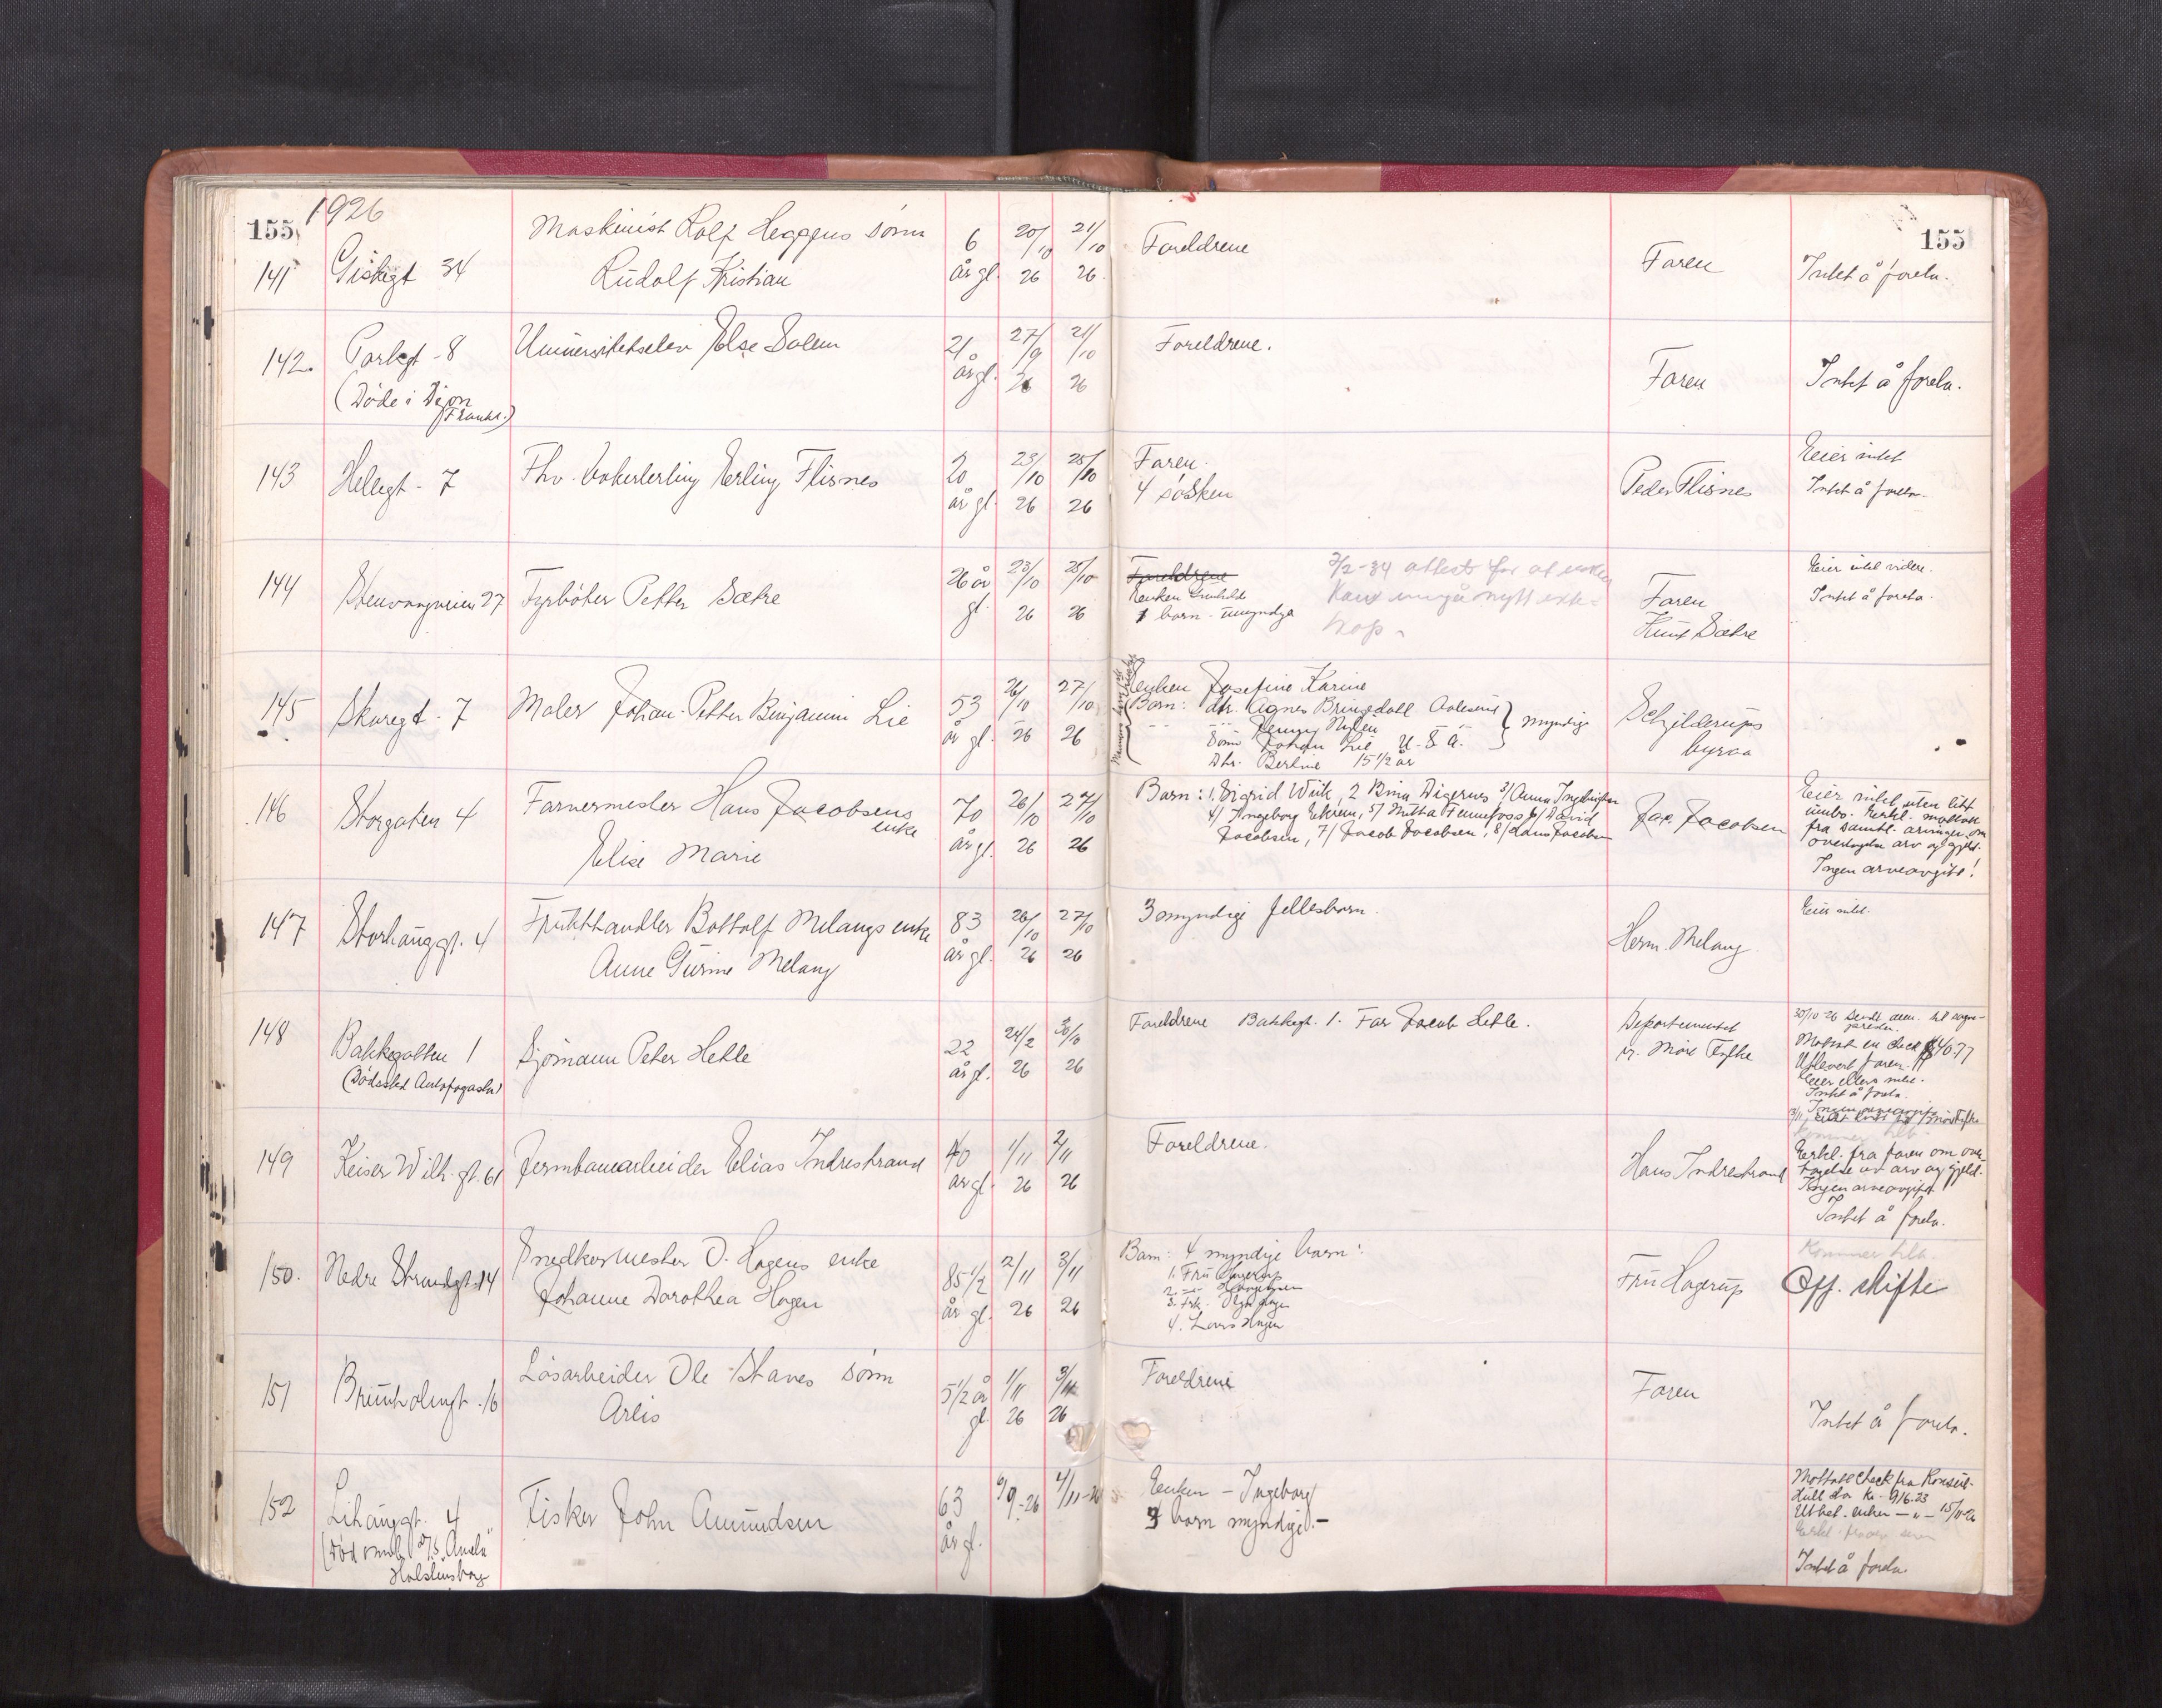 155
1926
155
141
Giskegt 34
Maskinist Rolf Heggens sönn
Rudolf Kristian
6
år gl.
20/10
26
21/10
26
Foreldrene
Faren
Intet å foreta.
142.
Parkgt - 8
(Döde i Dijon
Frankr.)
Universitetselev Else Dalen
21
år gl.
27/9
26
21/10
26
Foreldrene.
Faren
Intet å foreta.
143
Hellegt - 7
Fhv. bakerlerling Erling Flisnes
20
år gl.
23/10
26
25/10
26
Faren.
4 södsken
Peder Flisnes
Eier intet
Intet å foreta.
144
Stenvangveien 27
Fyrböter Petter Sætre
26 år
gl.
23/10
26
25/10
26
Foreldrene
Enken Gunhild
1 barn - umyndig
7/2-34 attest for at enken
kan inngå nytt ekte-
skap.
Faren
Knut Sætre
Eier intet videre.
Intet å foreta.
145
Skaregt - 7
Maler Johan Petter Benjamin Lie
53
år gl.
26/10
26
27/10
26
Enken Josefine Karine
Barn: dtr. Agnes Brinsdall Aalesund
Jenny Nylén
Sönn Johan Lie U.S.A.
myndige
Dtr. Berline 15 1/2 år
Schjelderups
byraa
146
Storgaten 4
Farvermester Hans Jacobsens
enke
Elise Marie
70
år gl.
26/10
26
27/10
26
Barn: 1. Sigrid Wiik, 2 Dina Digernes 3/ Anna Ingebrigtsen
4/ Ingeborg Ekrem, 5/ Mitta Fennefoss 6/ David
Jacobsen, 7/ Jacob Jacobsen, 8/ Hans Jacobsen
Jac. Jacobsen
Eier intet uten litt
innbo. Erkl. mottatt
fra samtl. arvinger om
overtagelse arv og gjeld.
Ingen arveavgift!
147
Storhauggt. 4
Frukthandler Bottolf Melangs enke
Anne Gurine Melang
83
år gl.
26/10
26
27/10
26
3 myndige fellesbarn.
Herm. Melang
Eier intet.
148
Bakkegatten 1
(Dödssted Antofogasta)
Sjömann Peter Hetle
22
år gl.
24/2
26
30/10
26
Foreldrene Bakkegt. 1. Far Jacob Hetle.
Departementet
v. Möre Fylke
30/10-26 Sendt dem. til sogne-
presten.
Mottatt en check 840.77
Utlevert faren.
Eier ellers intet.
Intet å foreta.
Ingen arveavgift
149
Keiser Wilh. gt. 61
Jernbanearbeider Elias Indrestrand
40
år gl.
1/11
26
2/11
26
Foreldrene.
Hans Indrestrand
Erkl. fra faren om over-
tagelse av arv og gjeld.
Ingen arveavgift
Intet å foreta.
150.
Nedre Strandgt. 14
Snedkermester O. Hagens enke
Johanne Dorothea Hagen
85 1/2
år gl.
2/11
26
3/11
26
Barn: 4 myndige barn:
1. Fru Hagerup
3. Frk. Olga Hagen
4. Lars Hagen
Fru Hagerup
Kommer tilb.
Off. skifte
151
Brunholmgt. 16
Lösarbeider Ole Staves sönn
Arlis
5 1/2 år
gl.
1/11
26
3/11
26
Foreldrene
Faren
Intet å foreta.
152
Lihauggt. 4
(död ombord D/S "Amela"
Holstensborg
Fisker John Amundsen
63
år gl.
6/9-26
4/11-26
Enken - Ingeborg
3 barn myndige.-
Mottatt check fra Konsul.
Hull stor kr. 916.33
Utbet. enken - " - 15/11-26
Intet å foreta.